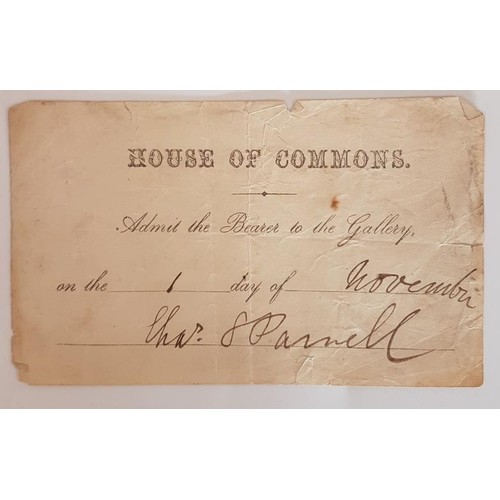 HOUSE OF COMMONS.
Admit the Bearer to the Gallery,
on the 1 day of November
Chas. S Parnell